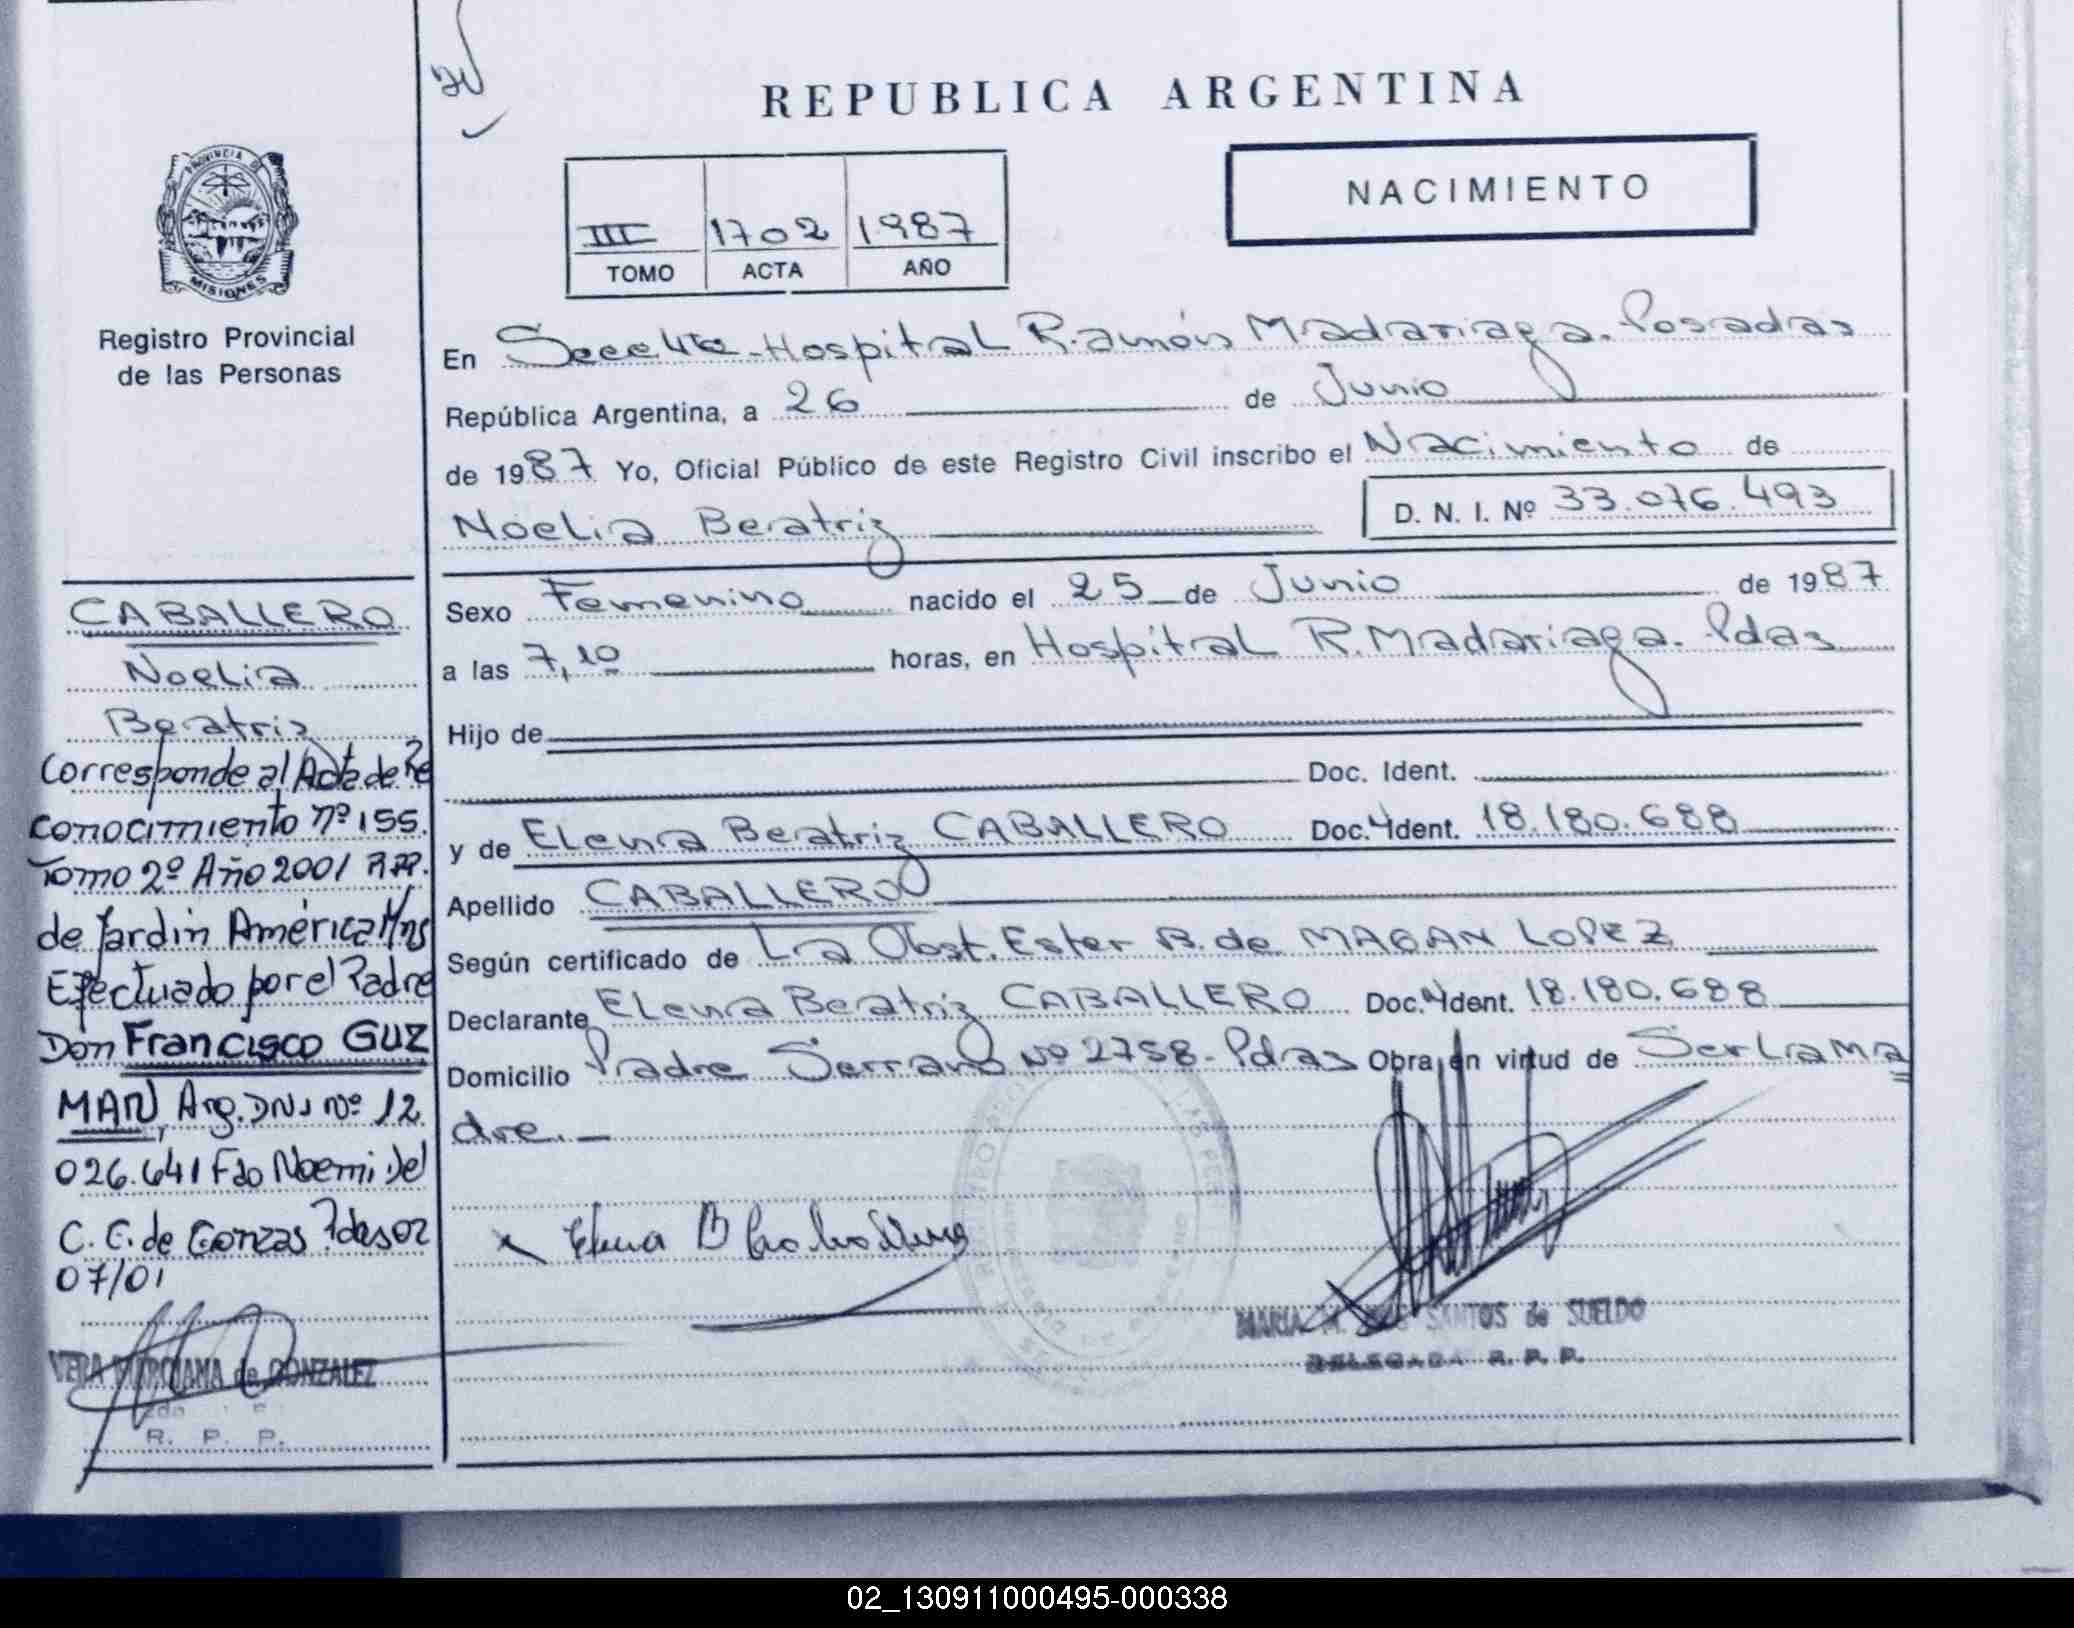 REPUBLICA ARGENTINA
NACIMIENTO
III 1702 1987
TOMO ACTA AÑO
PROVINCIA DE
MISIONES
Registro Provincial
de las Personas
En Secc 4ta - Hospital Ramón Madariaga. Posadas
República Argentina, a 26 de Junio
de 1987 Yo, Oficial Público de este Registro Civil inscribo el Nacimiento de
Noelia Beatriz D. N. I. Nº 33.076.493
Sexo Femenino nacido el 25 de Junio de 1987
a las 7,10 horas, en Hospital R. Madariaga. Pdas
Hijo de
Doc. Ident.
y de Elena Beatriz CABALLERO Doc. Ident. 18.180.688
Apellido CABALLERO
Según certificado de La Obst. Ester B. de MAGAN LOPEZ
Declarante Elena Beatriz CABALLERO Doc. Ident. 18.180.688
Domicilio Padre Serrano Nº 2758 - Pdas Obra en virtud de Ser La Ma
dre.
Elena B
MARIA M. SANTOS de SUELDO
DELEGADA R. P. P.
CABALLERO
Noelia
Beatriz
Corresponde al Acta de Re
conocimiento nº 155.
Tomo 2º Año 2001 R.P.P.
de Jardín América Mns
Efectuado por el Padre
Don Francisco GUZ
MAN, Arg. DNI Nº 12
026.641 Fdo Noemi del
C. C. de Gonzas Pdas 02
07/01
VERA de GONZALEZ
R. P. P.
02_130911000495-000338